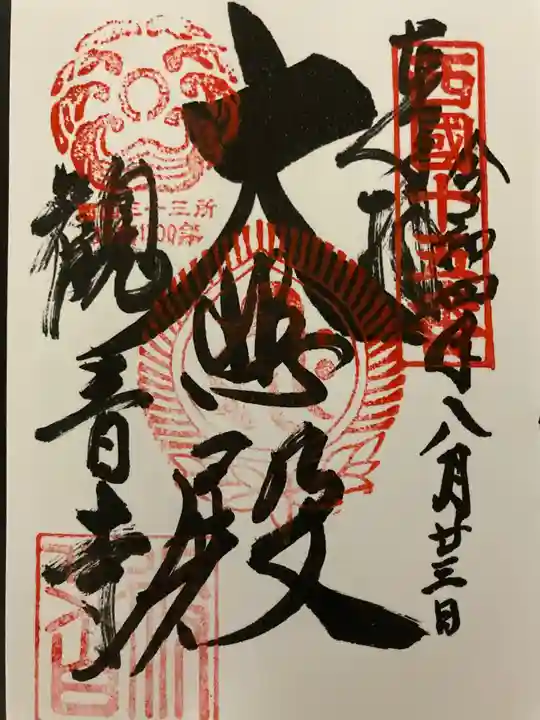 奉拝
令和四年八月廿三日
西國十五番
大悲殿
観音寺
三十三所
1300